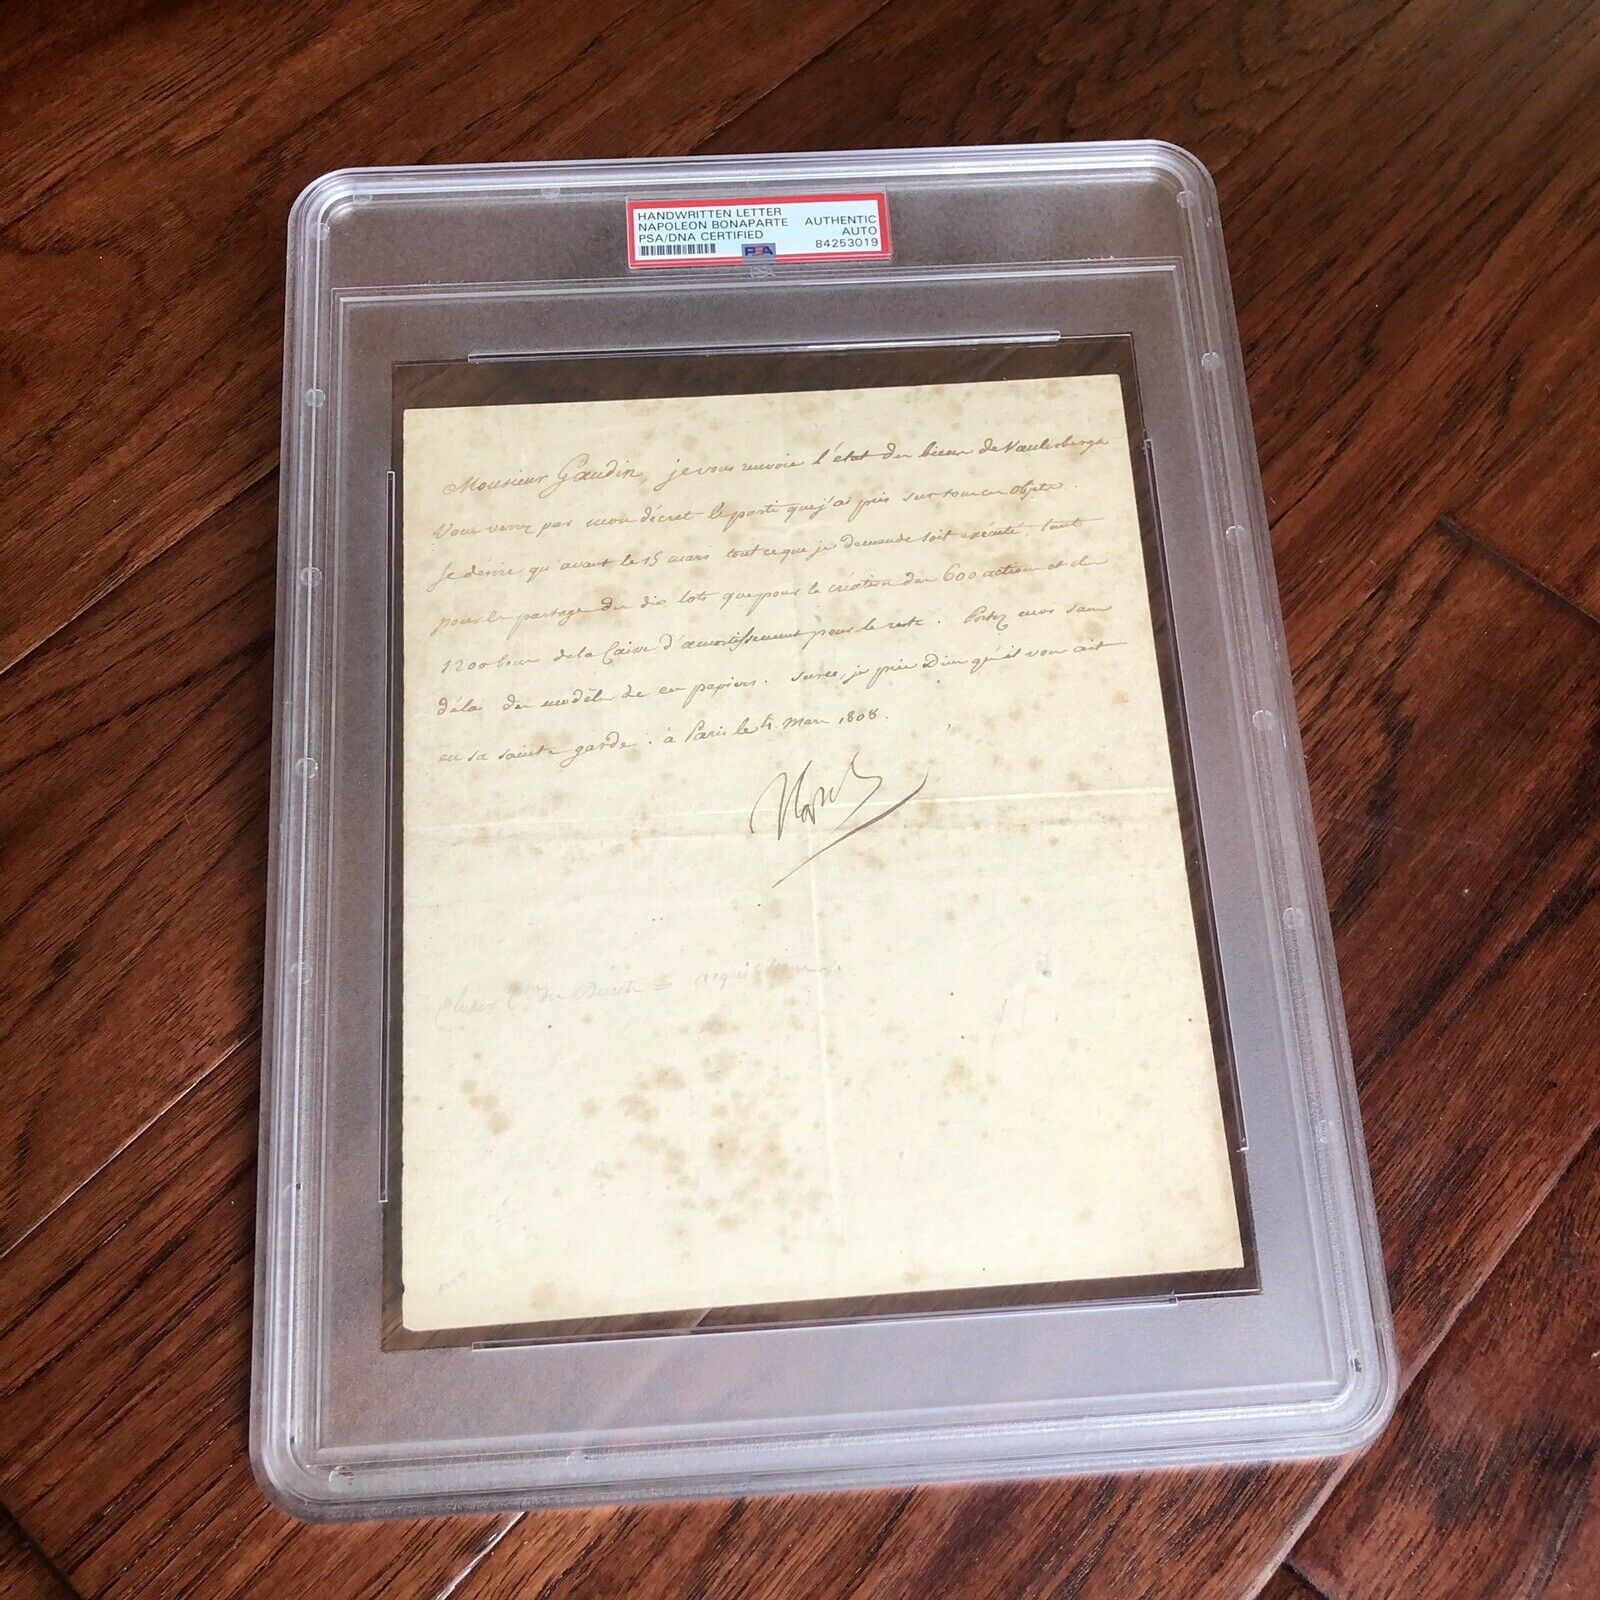 HANDWRITTEN LETTER
NAPOLEON BONAPARTE
PSA/DNA CERTIFIED
AUTHENTIC
AUTO
84253019
PSA
Monsieur Gaudin, je vous renvoie l'état des biens de Vanlerberghe
Vous verrez par mon décret le parti que j'ai pris sur tous ces objets.
Je désire qu'avant le 15 mars tout ce que je demande soit exécuté, tant
pour le partage des dix lots que pour la création des 600 actions et des
1200 bons de la Caisse d'amortissement pour le reste. Portez moi sans
délai des modèles de ces papiers. Sur ce, je prie Dieu qu'il vous ait
en sa sainte garde. à Paris le 4 Mars 1808.
Napol